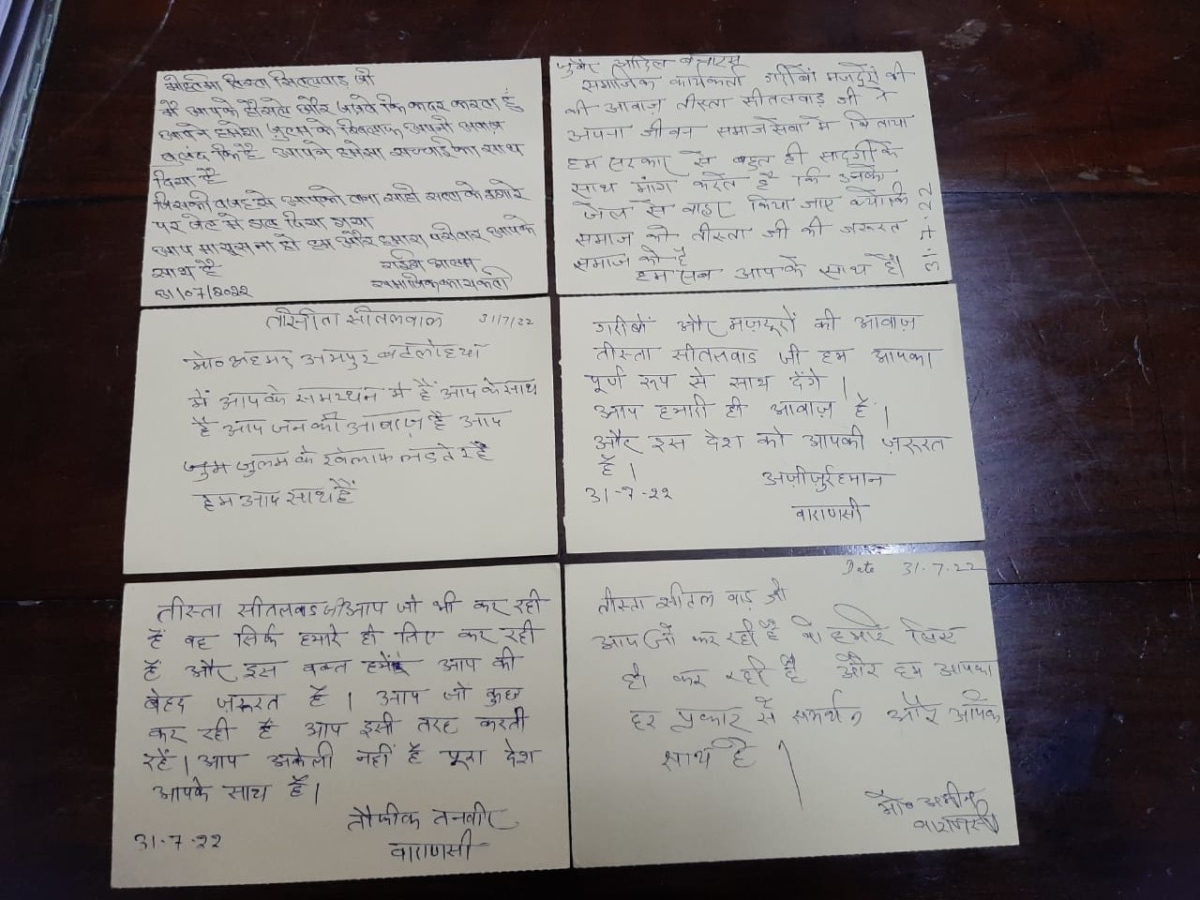 मैं आपके हौसले और जज़्बे कि कदर करता हुँ
आपने हमेशा ज़ुल्म के खिलाफ अपनी अवाज
बुलंद कि है आपने हमेशा सच्चाई का साथ
दिया है
पर जेल मे डाल दिया गया
आप मायूस ना हो हम और हमारा परिवार आपके
साथ है
31/07/2022
समाजिक कार्यकर्ता गरीबों मजदूरों की
की आवाज़ तीस्ता सीतलवाड़ जी ने
अपना जीवन समाज सेवा में बिताया
हम सरकार से बहुत ही सादगी के
साथ मांग करते है कि उनको
जेल से बाहर किया जाए क्योंकि
समाज को तीस्ता जी की जरूरत
समाज को है
हम सब आपके साथ है।
तीसीता सीतलवाल 31/7/22
मो० अहमद
में आपके समरथन मे हैं आप के साथ
है आप जन की आवाज़ है आप
जुम जुलम के खेलाफ लडते रहे
हम आप साथ हैं
गरीबों और मज़दूरों की आवाज़
तीस्ता सीतलवाड जी हम आपका
पूर्ण रूप से साथ देंगे।
आप हमारी ही आवाज़ हैं।
और इस देश को आपकी ज़रूरत
हैं।
31-7-22 अज़ीज़ुर्रहमान
वाराणसी
तीस्ता सीतलवाड जी आप जो भी कर रही
हैं वह सिर्फ हमारे ही लिए कर रही
हैं और इस वक्त हमें आप की
बेहद ज़रूरत हैं। आप जो कुछ
कर रही हैं आप इसी तरह करती
रहें। आप अकेली नहीं हैं पूरा देश
आपके साथ हैं।
तौफीक तनवीर
31-7-22 वाराणसी
Date 31.7.22
तीस्ता सीतल वाड़ जी
आप जो कर रही है वो हमारे लिए
ही कर रही है और हम आपका
हर प्रकार से समर्थन और आपके
साथ है।
मो०
वाराणसी